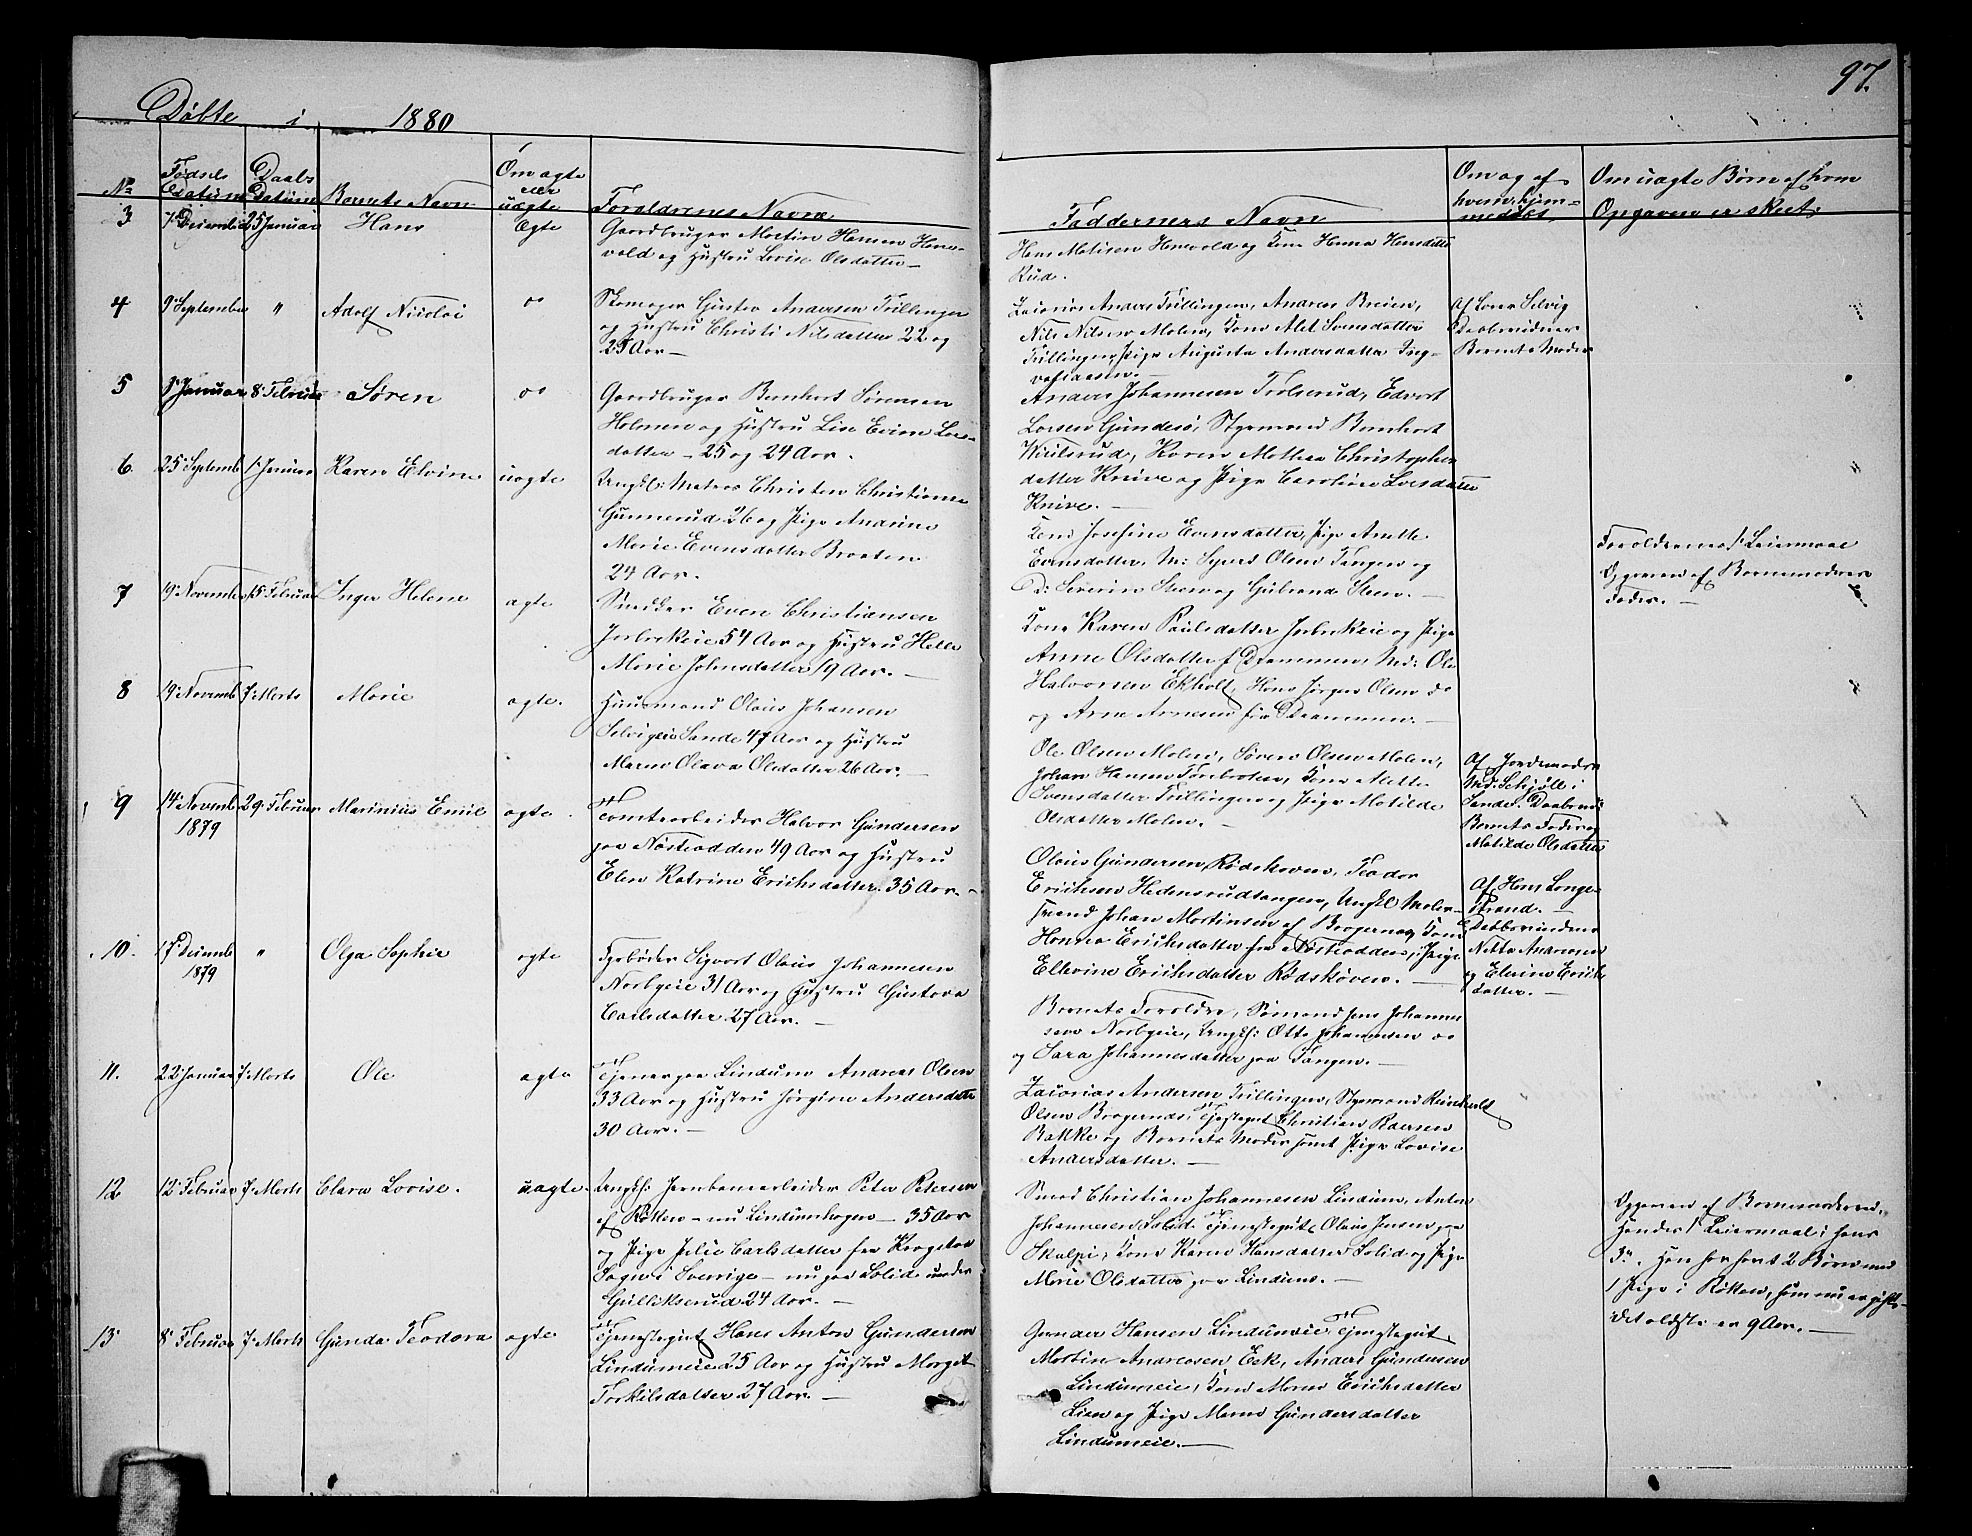 97.
Døbte i 1880
No
Fødsels Datum
Daabs Datum
Barnets Navn
Om ægte eller uægte
Forældrenes Navne
Faddernes Navn
Om og af hvem hjemmedøbt
Om uægte Børn af hvem Opgaven er skeet.
3 7 Decembe 25 Januar Hans Ægte
Gaardbruger Martin Hansen
og Hustru Lovise Olsdatter
og Kone Hanna Hansdatter
Rud.
4 9 September " Adolf Nicolai do
Skomager Gustav Andersen Trillingen
og Hustru Christi Nilsdatter 22 og
25 Aar
Zacarias Anders Trillingen, Andreas Breien,
Nils Nilsen Molen, Kone Alet Svensdatter
Trillingen, Pige Augusta Andersdatter
Af Lærer Selvig
Daabsvidner
Barnets Moder
5 Januar 8 Februar Søren do
Gaardbruger Bernhart Sørensen
Holmen og Hustru Lise Evine Lars-
datter 25 og 24 Aar.
Anders Johannesen Trolserud, Edvart
Larsen Gundesø, Styrmand Bernhart
Karen Mathea Christopher
datter Knive og Pige Caroline Larsdatter
Knive.
6 25 Septemb 1 Januar Karen Elvine uægte
Ungk: Matros Christen Christiansen
Gunnerud 26 og Pige Andrine
Marie Evensdatter Braaten
24 Aar.
Kone Josefine Evensdatter, Pige Anette
Evensdatter, M: Syvert Olsen Tangen og
D: Severin Steen og Gulbrand Steen.
Forældrenes 1 Leiermaal
Opgaven af Barnemoderens
Fader.
7 19 Novembe 15 Februar Inger Helene ægte
Snedker Even Christiansen
54 Aar og Hustru Helle
Marie Johnsdatter 19 Aar.
Kone Karen Paulsdatter og Pige
Anne Olsdatter f Drammen, Md: Ole
Halvorsen Ekholt, Hans Jørgen Olsen do
og Arne Arnesen fra Drammen.
8 19 Novemb 7 Marts Marie ægte.
Huusmand Olaus Johansen
Selvigeie Sande 47 Aar og Hustru
Maren Olava Olsdatter 26 Aar.
Ole Olsen Molen, Søren Olsen Molen,
Johan Hansen Kone Mette
Svensdatter Trillingen og Pige Matilde
Olsdatter Molen.
Af Jordemoder
Md. Schjøll i
Sande. Daabsvid
Barnets Fader og
Matilde Olsdatter
9 14 Novemb 1879 29 Februar Marinius Emil ægte
Tomtearbeider Halvor Gundersen
paa Nøsteodden 49 Aar og Hustru
Elen Katrine Erichsdatter 35 Aar
Olaus Gundersen Rødskoven, Teodor
Erichsen Hedensrudtangen, Ungkl Maler
Johan Martinsen af Bragernes, Kone
Hanna Erichsdatter fra Nøsteodden, Pige
Ellevine Erichsdatter Rødskoven.
Af Hans Lange-
strand.
Daabsvidner
Nette Andersen
og Elevine Erichs
datter.
10. 17 Decemb 1879 " Olga Sophie ægte
Fyrbøder Sigvart Olaus Johannesen
Norbyeie 31 Aar og Hustru Gustava
Carlsdatter 27 Aar.
Barnets Forældre, Sømand Jens Johanne
sen Norbyeie, Ungk: Otto Johannesen do
og Sara Johannesdatter paa Tangen.
11. 22 Januar 7 Marts Ole ægte
Tjener paa Lindum Andreas Olsen
33 Aar og Hustru Jørgine Andersdatte
30 Aar.
Zacarias Andersen Trillingen, Styrmand Reinholt
Olsen Bragernes, Tjenestegut Christian
Bakke og Barnets Moder samt Pige Lovise
Andersdatter.
12 12 Februar 7 Marts Clara Lovise. uægte.
Ungk: Jernbanearbeider Peter Petersen
af Røken nu Lindumhagen 35 Aar
og Pige Julie Carlsdatter fra Krogstad
Sogn i Sverige nu paa Solid under
Gulliksrud 24 Aar.
Smed Christian Johannesen Lindum, Anton
Johannesen Solid Tjenestegut Olaus Jensen paa
Skalpi, Kone Karen Hansdatter Solid og Pige
Marie Olsdatter paa Lindum.
Opgaven af Barnemoderen,
Hendes 1 Leiermaal, hans
3. Han har havt 2 Børn med
1 Pige i Røken, som nu er gift,
det oldste er 9 Aar.
13 8 Februar 7 Marts Gunda Teodora ægte
Tjenestegut Hans Anton Gundersen
Lindumeie 25 Aar og Hustru Margit
Torkilsdatter 27 Aar.
Gunder Hansen Lindumeie Tjenestegut
Martin Andreasen Eek, Anders Gundersen
Lindumeie, Kone Maren Erichsdatter
Lien og Pige Maren Gundersdatter
Lindumeie.